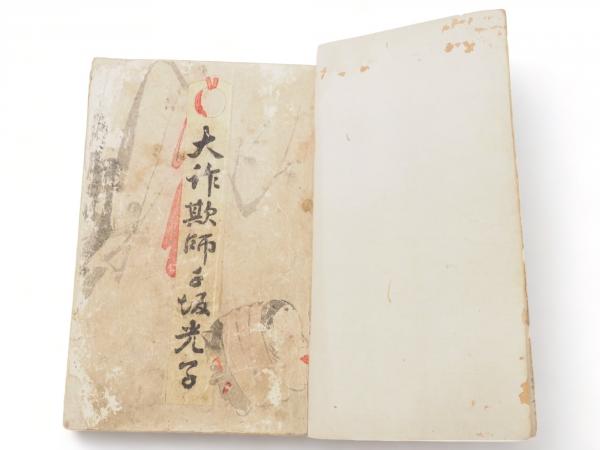 大詐欺師千坂光子